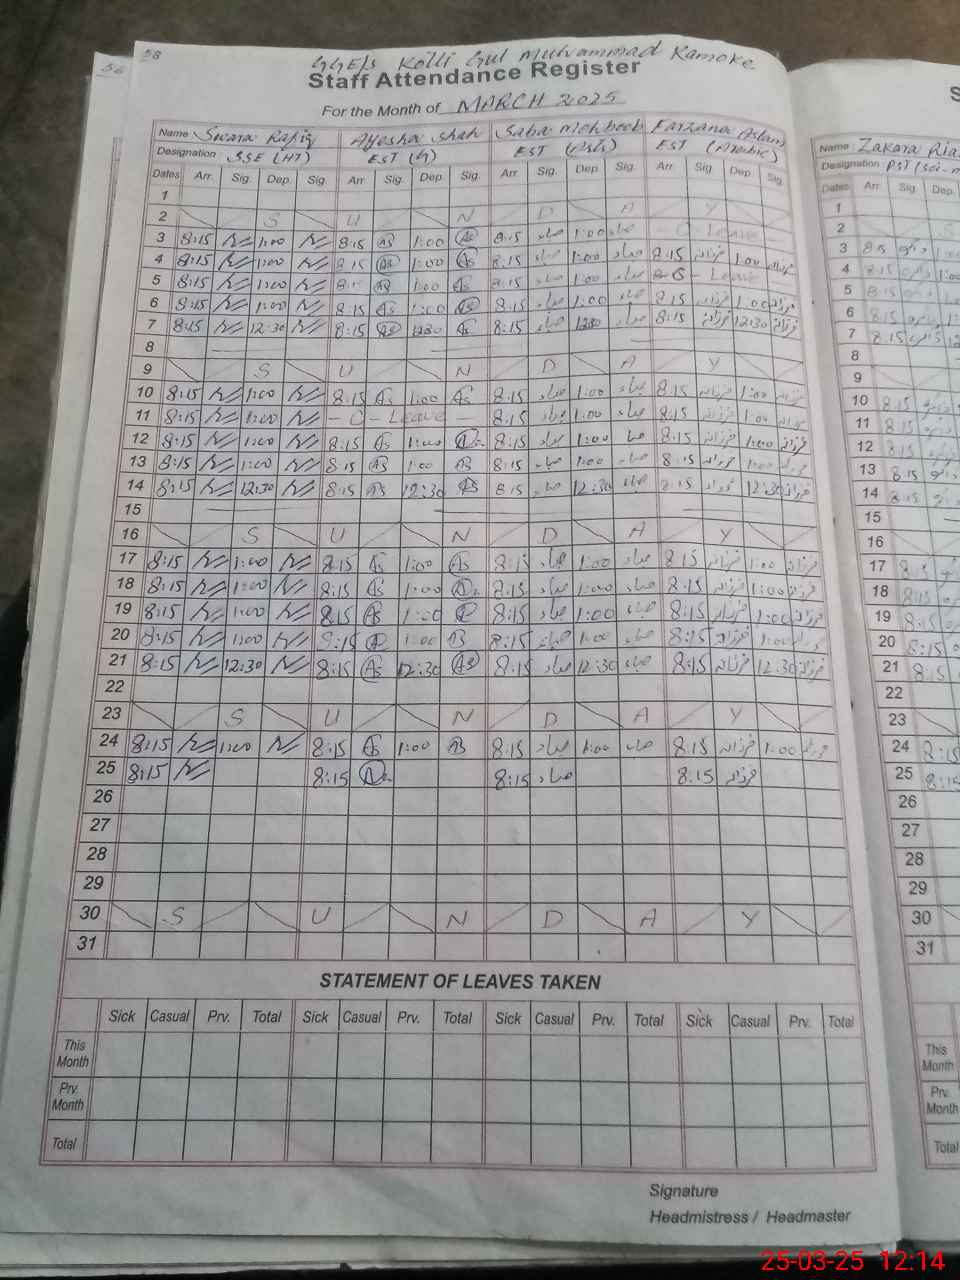 58
GGE/S Kolli Gul Muhammad Kamoke
Staff Attendance Register
For the Month of MARCH 2025
Name Swara Rafiq Ayesha Shah Saba Mehboob Farzana Aslam
Designation SSE (HT) EST (G) EST (Arabic)
Dates Arr. Sig. Dep. Sig. Arr. Sig. Dep. Sig. Arr Sig. Dep. Sig. Arr Sig Dep. Sig.
1
2 S U N D A Y
3 8:15 1:00 8:15 AS 1:00 AS 8:15 صباء 1:00 صباء - C - Leave -
4 8:15 1:00 8:15 AS 1:00 AS 8:15 صباء 1:00 صباء 8:15 فرزانہ 1:00 فرزانہ
5 8:15 1:00 8:15 AS 1:00 AS 8:15 صباء 1:00 صباء C - Leave -
6 8:15 1:00 8:15 AS 1:00 AS 8:15 صباء 1:00 صباء 8:15 فرزانہ 1:00 فرزانہ
7 8:15 12:30 8:15 AS 1230 AS 8:15 صباء 1230 صباء 8:15 فرزانہ 12:30 فرزانہ
8
9 S U N D A Y
10 8:15 1:00 8:15 AS 1:00 AS 8:15 صباء 1:00 صباء 8:15 فرزانہ 1:00 فرزانہ
11 8:15 1:00 - C - Leave - 8:15 صباء 1:00 صباء 8:15 فرزانہ 1:00 فرزانہ
12 8:15 1:00 8:15 AS 1:00 8:15 صباء 1:00 صباء 8:15 فرزانہ 1:00 فرزانہ
13 8:15 1:00 8:15 AS 1:00 AS 8:15 صباء 1:00 صباء 8:15 فرزانہ 1:00 فرزانہ
14 8:15 12:30 8:15 AS 12:30 AS 8:15 صباء 12:30 صباء 8:15 فرزانہ 12:30 فرزانہ
15
16 S U N D A Y
17 8:15 1:00 8:15 AS 1:00 AS 8:15 صباء 1:00 صباء 8:15 فرزانہ 1:00 فرزانہ
18 8:15 1:00 8:15 AS 1:00 8:15 صباء 1:00 صباء 8:15 فرزانہ 1:00 فرزانہ
19 8:15 1:00 8:15 AS 1:00 8:15 صباء 1:00 صباء 8:15 فرزانہ 1:00 فرزانہ
20 8:15 1:00 8:15 1:00 AS 8:15 صباء 1:00 صباء 8:15 فرزانہ 1:00 فرزانہ
21 8:15 12:30 8:15 AS 12:30 AS 8:15 صباء 12:30 صباء 8:15 فرزانہ 12:30 فرزانہ
22
23 S U N D A Y
24 8:15 1:00 8:15 AS 1:00 AS 8:15 صباء 1:00 صباء 8:15 فرزانہ 1:00 فرزانہ
25 8:15 8:15 8:15 صباء 8:15 فرزانہ
26
27
28
29
30 S U N D A Y
31
STATEMENT OF LEAVES TAKEN
Sick Casual Prv. Total Sick Casual Prv. Total Sick Casual Prv. Total Sick Casual Prv. Total
This Month
Prv. Month
Total
Signature
Headmistress / Headmaster
S
Name : Zakara Ria
Designation PST (Sci-m
Dates Arr Sig. Dep.
1
2
3 8:15
4 8:15
5 8:15
6 8:15
7 8:15
8
9
10 8:15
11 8:15
12 8:15
13 8:15
14 8:15
15
16
17 8:15
18 8:15
19 8:15
20 8:15
21 8:15
22
23
24 8:15
25 8:15
26
27
28
29
30
31
This Month
Prv. Month
Total
25-03-25 12:14